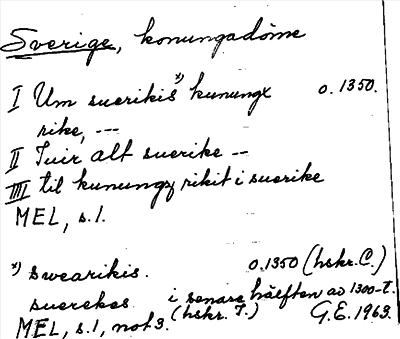 Sverige, konungadöme
I Um suerikis *) kunungx o. 1350.
rike, ---
II Iuir alt suerike --
III til kunungz rikit i suerike
MEL, s. 1.
*) swearikis. o. 1350 (hskr. C.)
suerekes i senare hälften av 1300-t.
(hskr. T.)
MEL, s. 1, not 3. G.E. 1963.